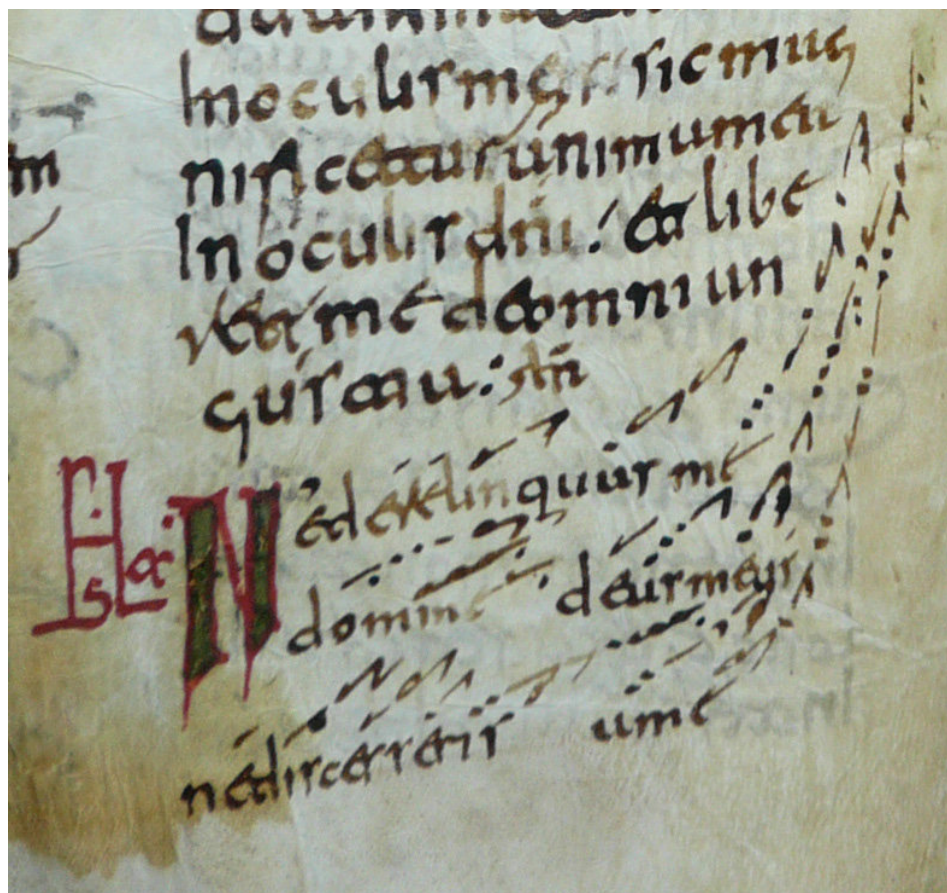 In oculis meis sic mag
nificetur anima mea
In oculis dni. et libe
ret me de omni an
gustia:
Ne derelinquas me
domine deus meus
ne disceseris a me